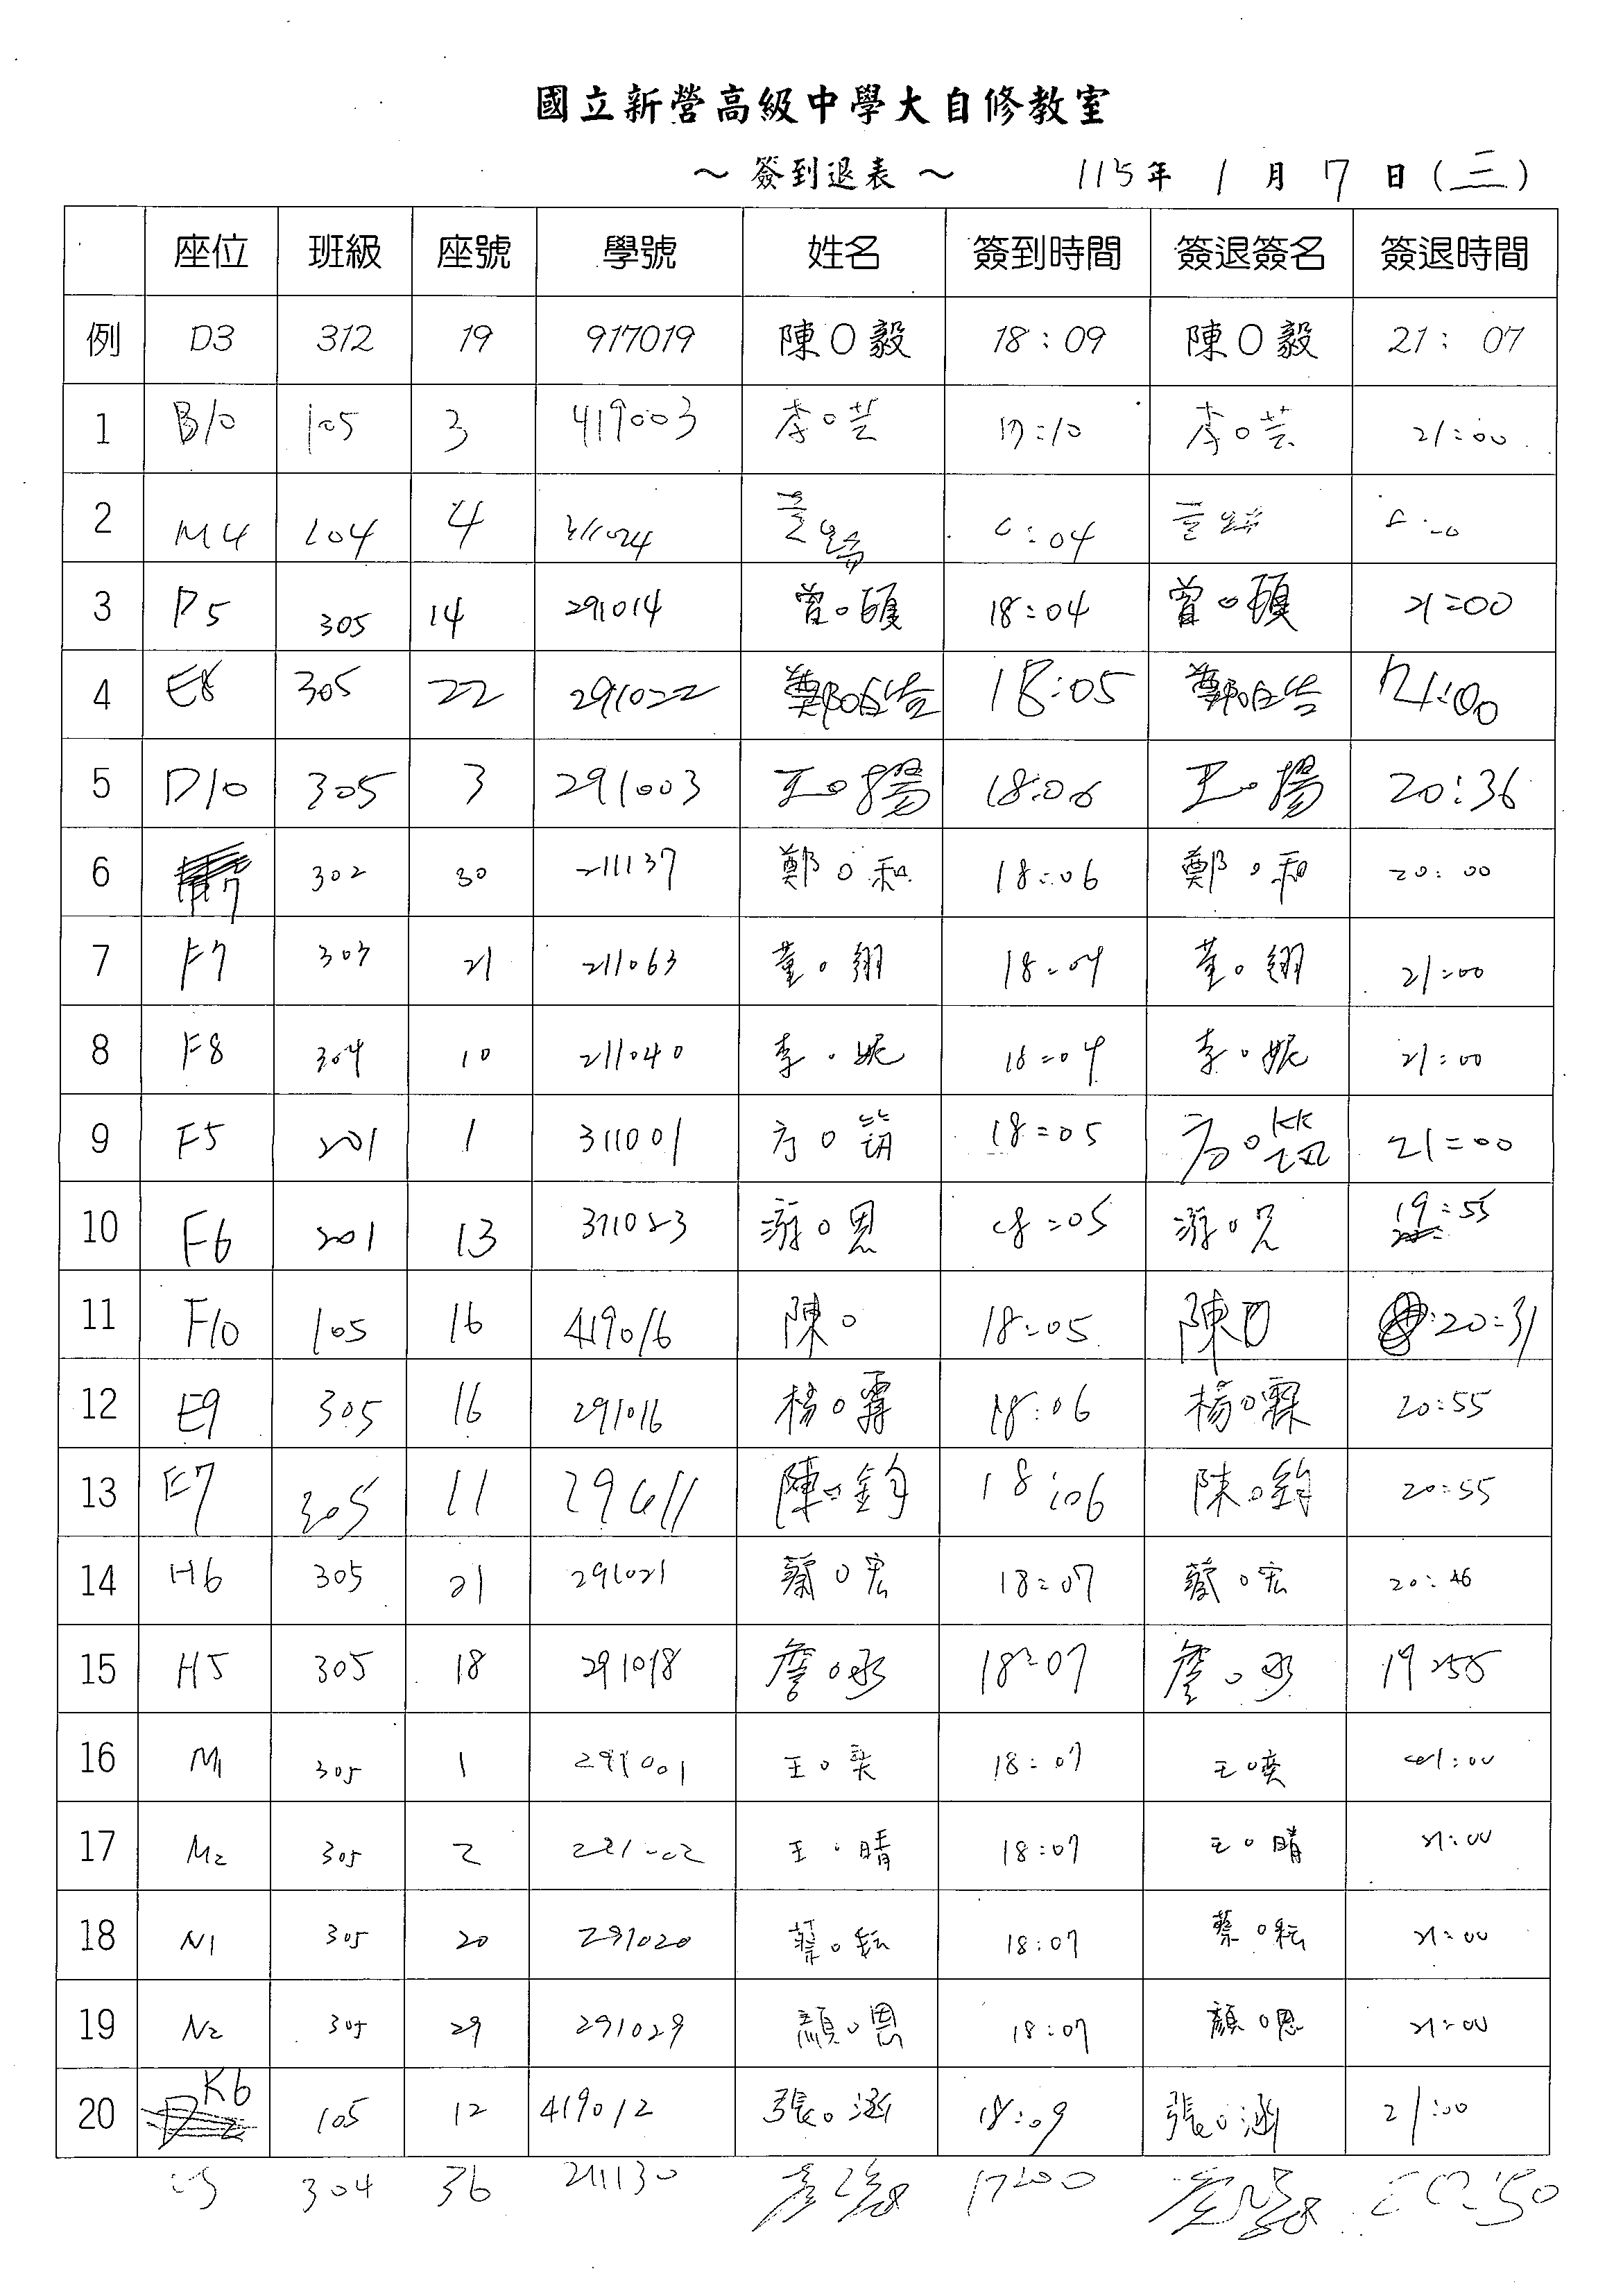 國立新營高級中學大自修教室
～ 簽到退表 ～ 115年 1 月 7 日 (三)
座位 班級 座號 學號 姓名 簽到時間 簽退簽名 簽退時間
例 D3 312 19 917019 陳O毅 18:09 陳O毅 21:07
1 B10 105 3 419003 李O芸 17:10 李O芸 21:00
2 M4 104 4 :04
3 D5 305 14 291014 曾O頤 18:04 曾O頤 21:00
4 E8 305 22 291022 鄭O浩 18:05 鄭O浩 21:00
5 D10 305 3 291003 王O揚 18:06 王O揚 20:36
6 302 30 211137 鄭O和 18:06 鄭O和 20:00
7 F7 303 21 211063 董O翔 18:04 董O翔 21:00
8 F8 304 10 211040 李O妮 18:04 李O妮 21:00
9 F5 201 1 311001 方O筑 18:05 方O筑 21:00
10 F6 201 13 游O恩 18:05 游O恩 19:55
11 F10 105 16 419016 陳O 18:05 陳O 20:31
12 E9 305 16 291016 楊O霖 18:06 楊O霖 20:55
13 E7 305 11 陳O鈞 18:06 陳O鈞 20:55
14 H6 305 21 291021 蔡O宏 18:07 蔡O宏 20:46
15 H5 305 18 291018 詹O丞 18:07 詹O丞 19:55
16 M1 305 1 291001 王O奕 18:07 王O奕 21:00
17 M2 305 2 291002 王O晴 18:07 王O晴 21:00
18 N1 305 20 291020 蔡O耘 18:07 蔡O耘 21:00
19 N2 305 29 291029 顏O恩 18:07 顏O恩 21:00
20 K6 105 12 419012 張O涵 18:09 張O涵 21:00
304 36 211130 17:00 :50